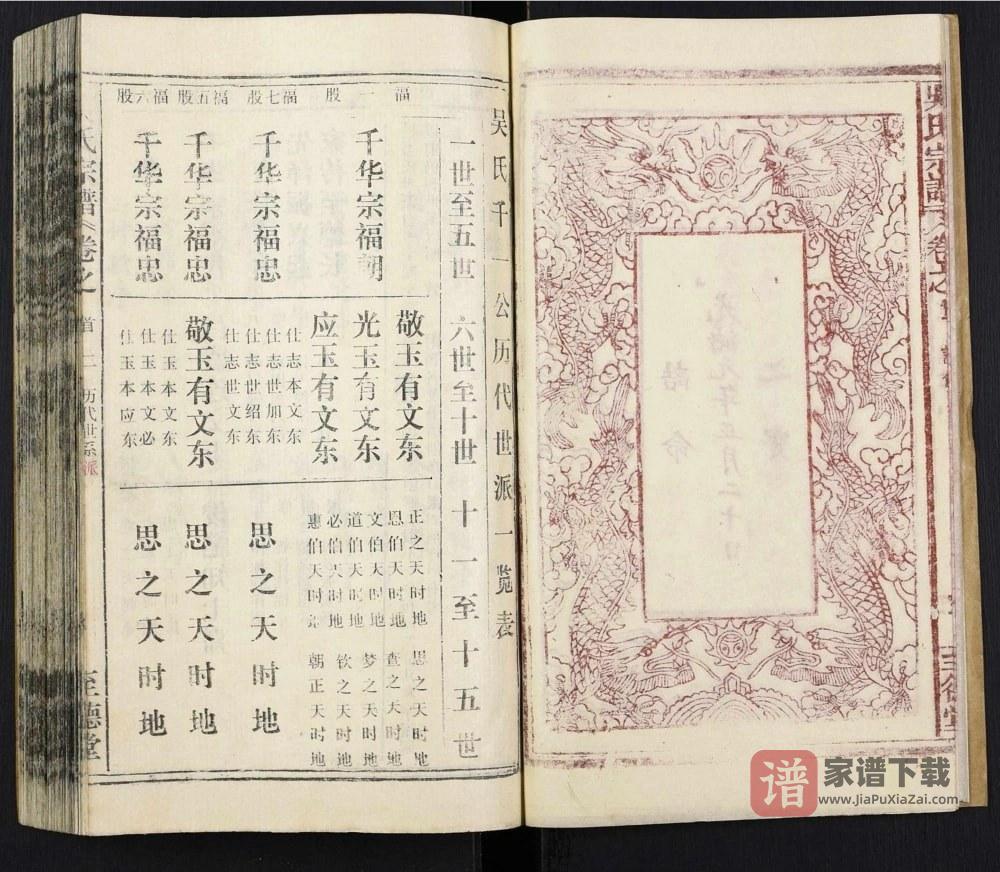 吴氏宗谱
卷之首
诰命
光绪元年正月二十日
诰命
之宝
至德堂
吴氏千一公历代世派一览表
一世至五世
六世至十世
十一至十五世
福一股
千华宗福朝
敬玉有文东
光玉有文东
应玉有文东
正之天时地
恩伯天时地
文伯天时地
道伯天时地
必伯天时地
惠伯天时
思之天时地
查之天时地
梦之天时地
钦之天时地
朝正天时地
福七股
千华宗福忠
仕志本文东
仕志世加东
仕志世绍东
仕志世文东
思之天时地
福五股
千华宗福忠
敬玉有文东
思之天时地
福六股
千华宗福忠
仕玉本文东
仕玉本文必
仕玉本应东
思之天时地
氏宗谱
卷之
首
二
历代世系派
至德堂
谱
家谱下载
www.JiaPuXiaZai.com